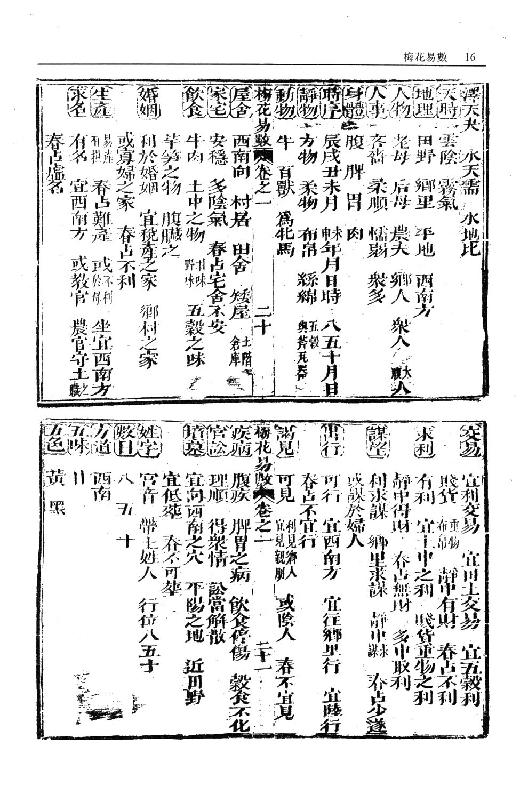 梅花易數 16
澤天夬 水天需 水地比
天時 雲陰 霧氣
地理 田野 鄉里 平地 西南方
人物 老母 后母 農夫 鄉人 眾人 大腹人
人事 吝嗇 柔順 懦弱 眾多
身體 腹 脾 胃 肉
時序 辰戌丑未月 未申年月日時 八五十月日
靜物 方物 柔物 布帛 絲綿 五穀 輿釜瓦器
動物 牛 百獸 為牝馬
梅花易數 卷之一 二十
屋舍 西南向 村居 田舍 矮屋 土階 倉庫
家宅 安穩 多陰氣 春占宅舍不安
飲食 牛肉 土中之物 甘味 野味 五穀之味
芋笋之物 腹臟之
婚姻 利於婚姻 宜稅產之家 鄉村之家
或寡婦之家 春占不利
生產 易產 春占難產 有損 或不利於母 坐宜西南方
求名 有名 宜西南方 或教官 農官守土之職
春占虛名
交易 宜利交易 宜田土交易 宜五穀利
賤貨 重物 布帛 靜中有財 春占不利
求利 有利 宜土中之利 賤貨重物之利
靜中得財 春占無財 多中取利
謀望 利求謀 鄉里求謀 靜中求謀 春占少遂
或謀於婦人
出行 可行 宜西南方 宜往鄉里行 宜陸行
春占不宜行
謁見 可見 利見鄉人 宜見親朋 或陰人 春不宜見
梅花易數 卷之一 二十一
疾病 腹疾 脾胃之病 飲食停傷 穀食不化
官訟 理順 得眾情 訟當解散
墳墓 宜向西南之穴 平陽之地 近田野
宜低葬 春不可葬
姓字 宮音 帶土姓人 行位八五十
數目 八 五 十
方道 西南
五味 甘
五色 黃 黑